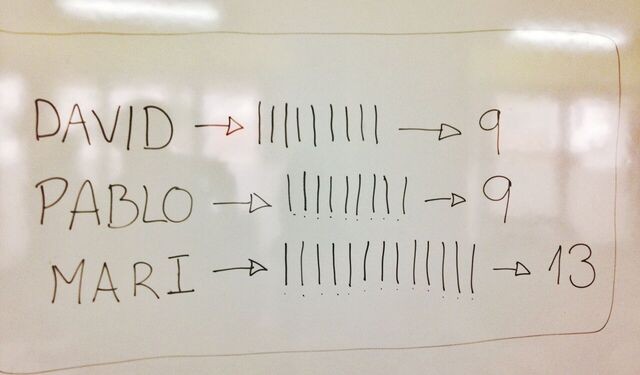 DAVID → |||||||||| → 9
PABLO → ||||||||| → 9
MARI → ||||||||||||| → 13